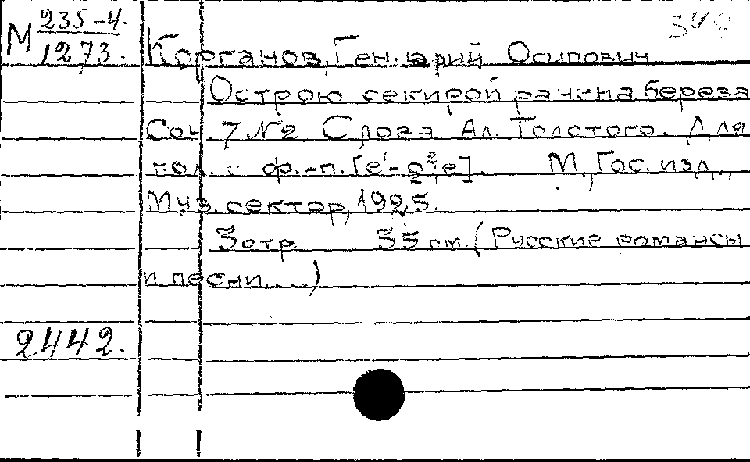 М 235-4.
1273.
Корганов, Ген. арий Осипович
Острою секирой ранена береза
Соч. 7 № 2 Слова Ал. Толстого. Для
гол. с ф.-п. [e¹- e]. М., Гос. изд.,
Муз. сектор, 1925.
5 стр 35 см. (Русские романсы
и песни...)
2442.